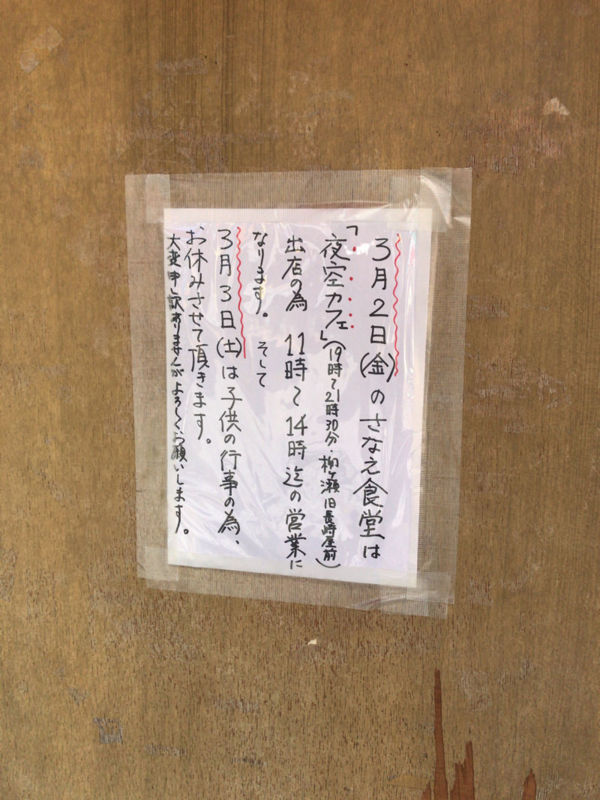 3月2日(金)のさなえ食堂は
「夜空カフェ」(19時〜21時30分・柳ヶ瀬旧長崎屋前)
出店の為 11時〜14時迄の営業に
なります。そして
3月3日(土)は子供の行事の為、
お休みさせて頂きます。
大変申し訳ありませんがよろしくお願いします。